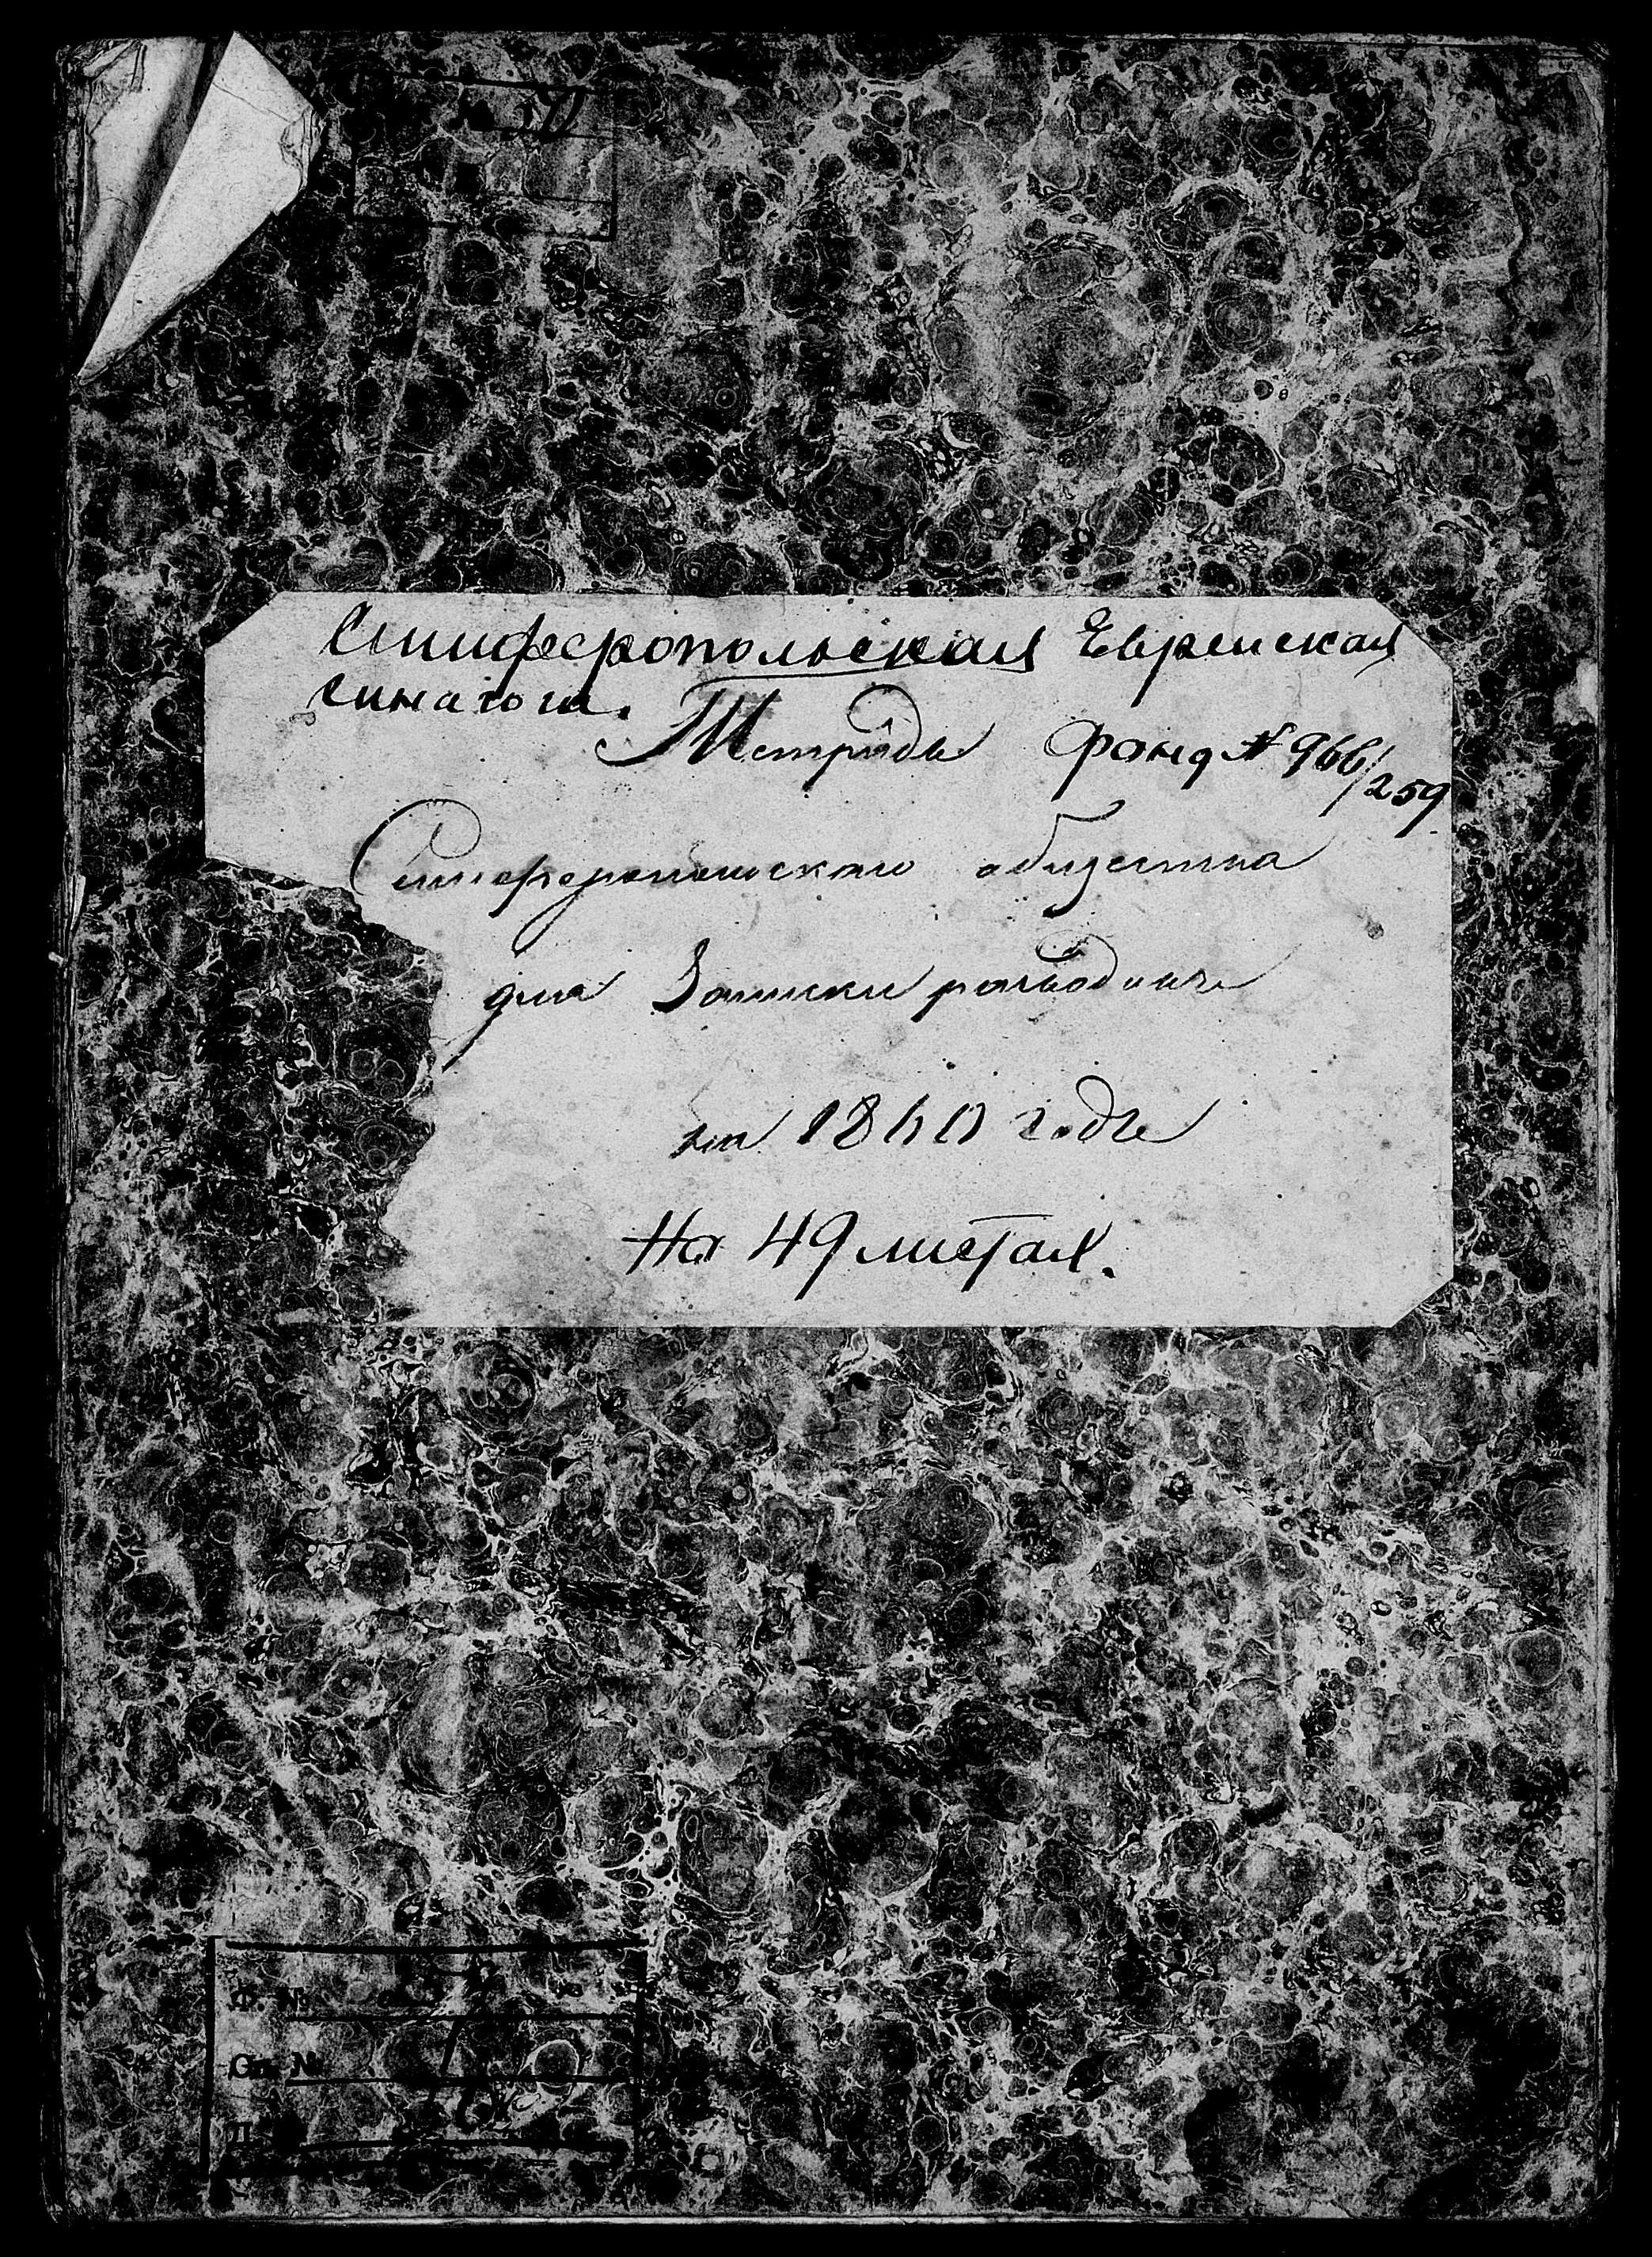 Симферопольская Еврейская
Синагога.
Тетрадь Фонд № 966/259.
Симферопольскаго общества
для Записки разводовъ
на 1860 годъ
На 49 листах.
Ф. №
Оп. №